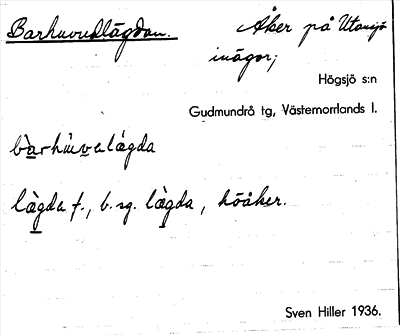 Barhuvudlägdan.
Åker på Utansjö
inägor;
Högsjö s:n
Gudmundrå tg, Västernorrlands l.
bàrhùvelägda
lägda f., b. sg. lägda, höåker.
Sven Hiller 1936.